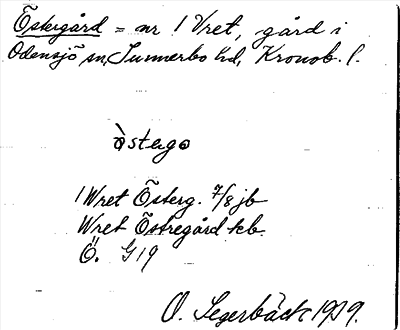 Östergård = nr 1 Vret, gård i
Odensjö sn, Sunnerbo hd, Kronob. l.
òstago
1 Wret Österg. 7/8 jb
Wret Östregård kb.
Ö. G 19
O. Segerbäck 1919.